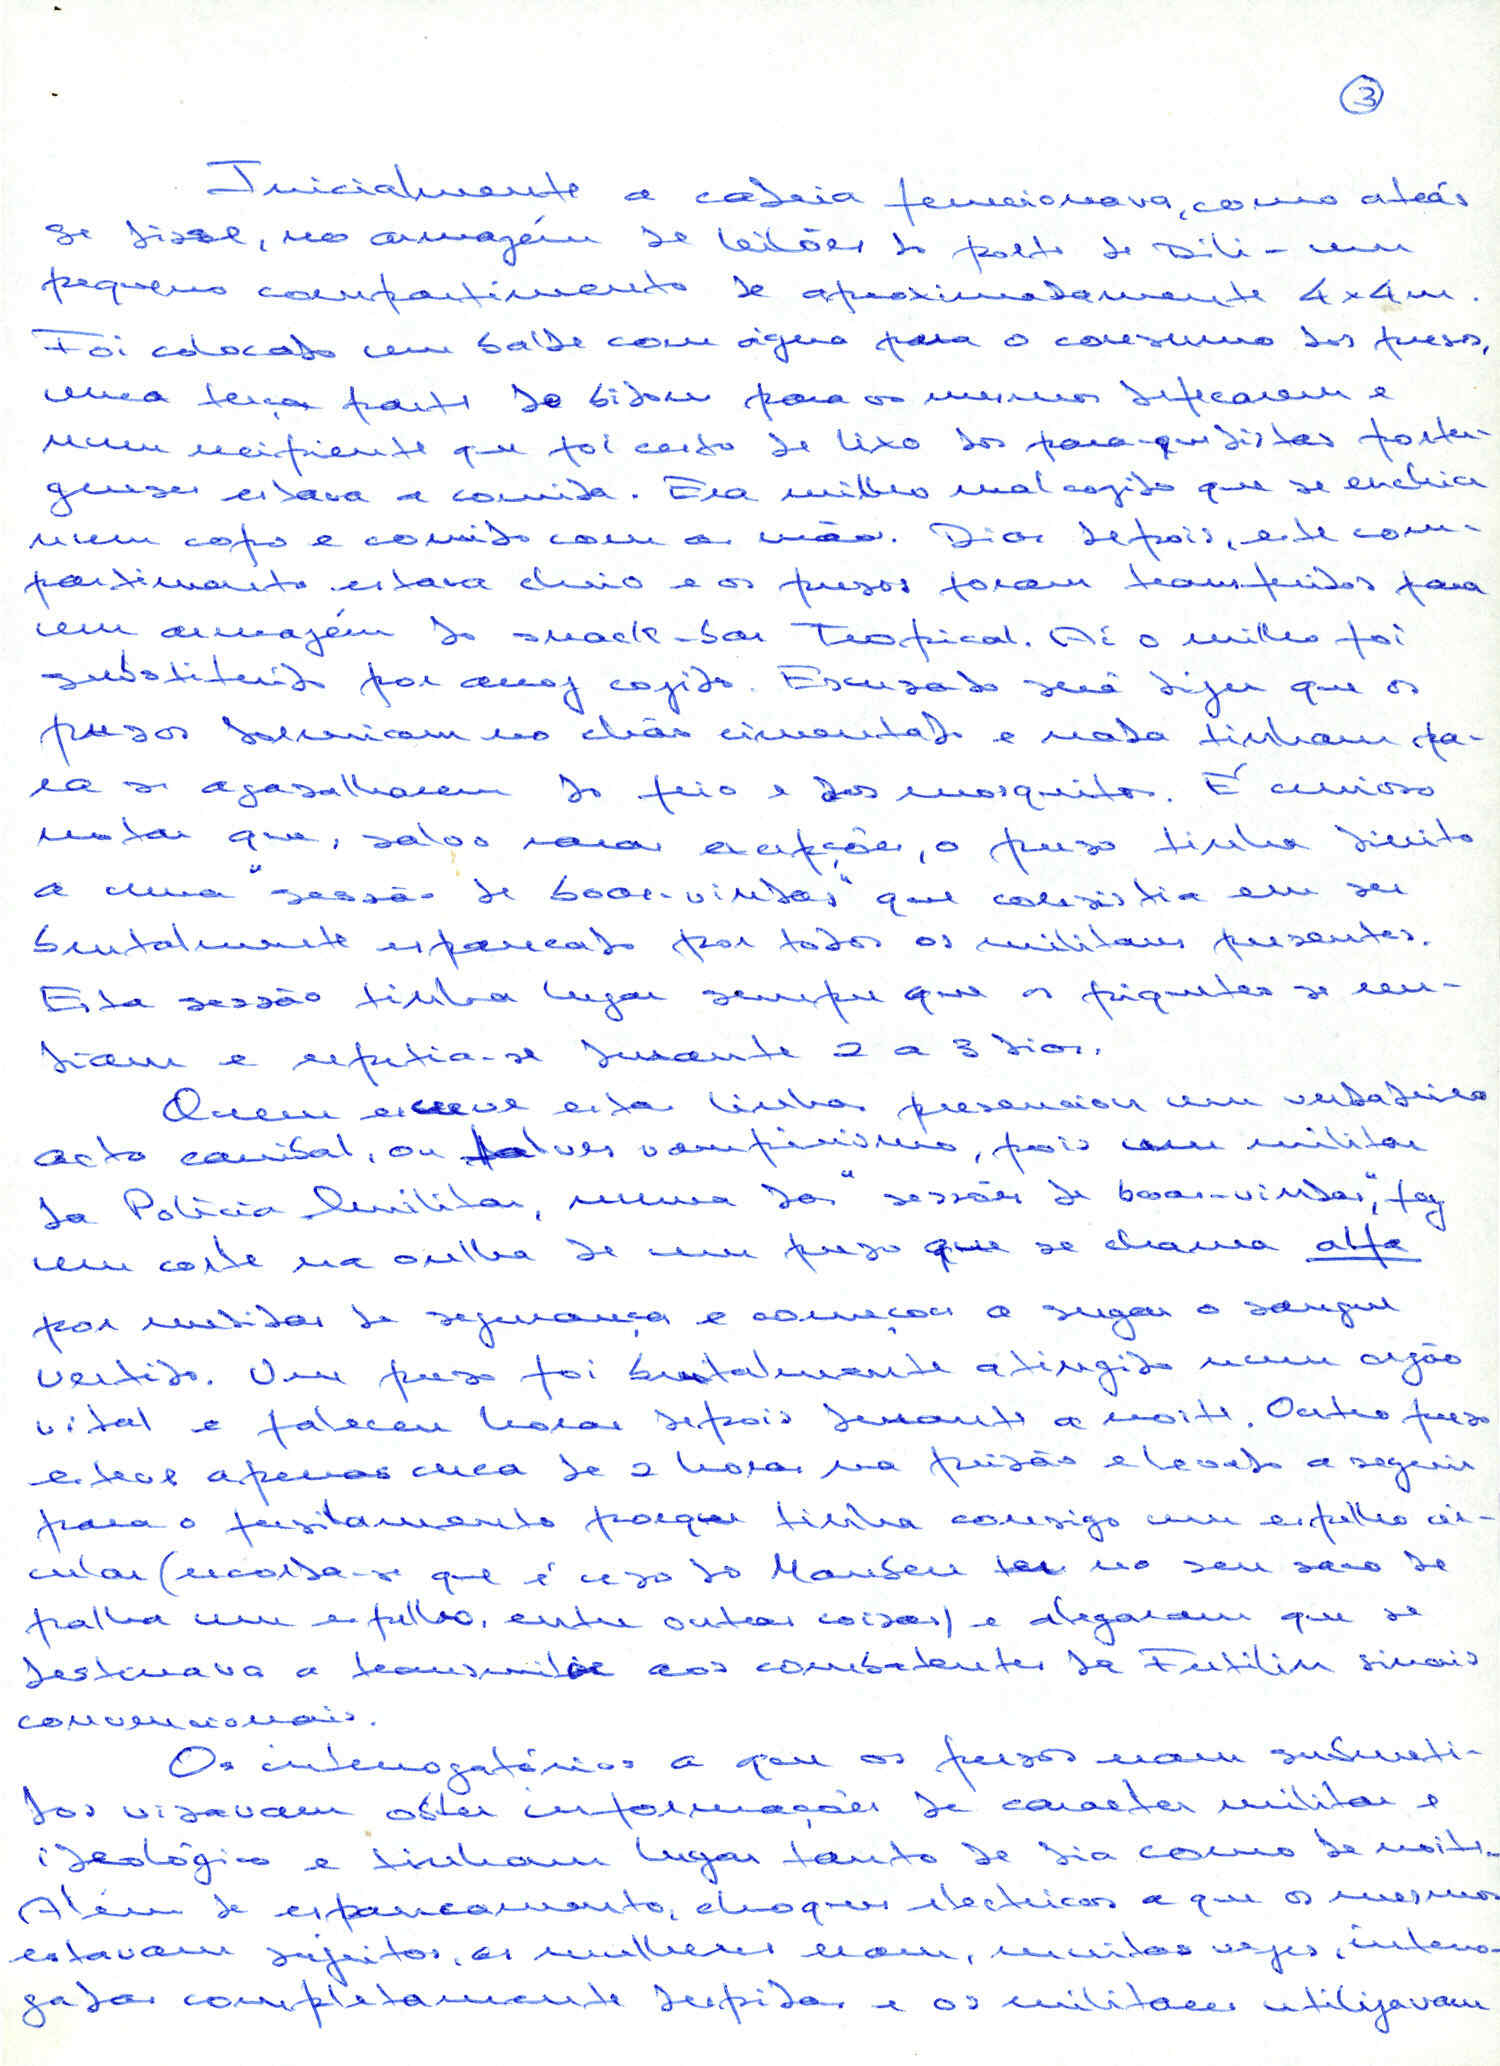 3
Inicialmente a cadeia funcionava, como atrás
se disse, no armazém de leilões do porto de Dili - um
pequeno compartimento de aproximadamente 4x4m.
Foi colocado um balde com água para o consumo dos presos,
uma terça parte do bidom para os mesmos defecarem e
num recipiente que foi cesto de lixo dos para-quedistas portu-
gueses estava a comida. Era milho mal cozido que se enchia
num copo e comido com as mãos. Dias depois, este com-
partimento estava cheio e os presos foram transferidos para
um armazém do snack-bar Tropical. Aí o milho foi
substituido por arroz cozido. Escusado será dizer que os
presos dormiam no chão cimentado e nada tinham pa-
ra se agasalharem do frio e dos mosquitos. É curioso
notar que, salvo raras excepções, o preso tinha direito
a uma "sessão de boas-vindas" que consistia em ser
brutalmente espancado por todos os militares presentes.
Esta sessão tinha lugar sempre que os piquetes se ren-
diam e repetia-se durante 2 a 3 dias.
Quem escreve estas linhas presenciou um verdadeiro
acto canibal, ou talves vampirismo, pois um militar
da Polícia Militar, numa das "sessões de boas-vindas", fez
um corte na orelha de um preso que se chama alfa
por medidas de segurança e começou a sugar o sangue
vertido. Um preso foi brutalmente atingido num orgão
vital e faleceu horas depois durante a noite. Outro preso
esteve apenas cerca de 2 horas na prisão e levado a seguir
para o fusilamento porque tinha consigo um espelho cir-
cular (recorda-se que é uso do Maubere ter no seu saco de
palha um espelho, entre outras coisas) e alegaram que se
destinava a transmitir aos combatentes da Fretilin sinais
convencionais.
Os interrogatórios a que os presos eram submeti-
dos visavam obter informações de caracter militar e
ideológico e tinham lugar tanto de dia como de noite.
Além de espancamento, choques electricos a que os mesmos
estavam sujeitos, as mulheres eram, muitas vezes, interro-
gadas completamente despidas e os militares utilizavam